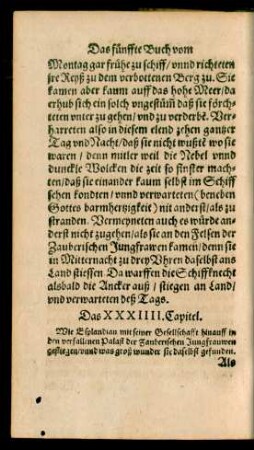 Das fünffte Buch vom
Montag gar frühe zu schiff / vnnd richteten
jre Reyß zu dem verbottenen Berg zu. Sie
kamen aber kaum auff das hohe Meer / da
erhub sich ein solch vngestüm̃ daß sie förch-
teten vnter zu gehen / vnd zu verderbē. Ver-
harreten also in diesem elend zehen gantzer
Tag vnd Nacht / daß sie nicht wustē wo sie
waren / denn mitler weil die Nebel vnnd
dunckle Wolcken die zeit so finster mach-
ten / daß sie einander kaum selbst im Schiff
sehen kondten / vnnd verwarteten (beneben
Gottes barmhertzigkeit) nit anderst / als zu
stranden. Vermeyneten auch es würde an-
derst nicht zugehen / als sie an den Felsen der
Zauberischen Jungfrawen kamen / denn sie
in Mitternacht zu drey Vhren daselbst ans
Land stiessen Da warffen die Schiffknecht
alsbald die Ancker auß / stiegen an Land /
vnd verwarteten deß Tags.
Das XXXIIII. Capitel.
Wie Esplandian mit seiner Gesellschafft hinauff in
den verfallenen Palast der Zauberischen Jungfrauwen
gestiegen / vnnd was groß wunder sie daselbst gefunden.
Als